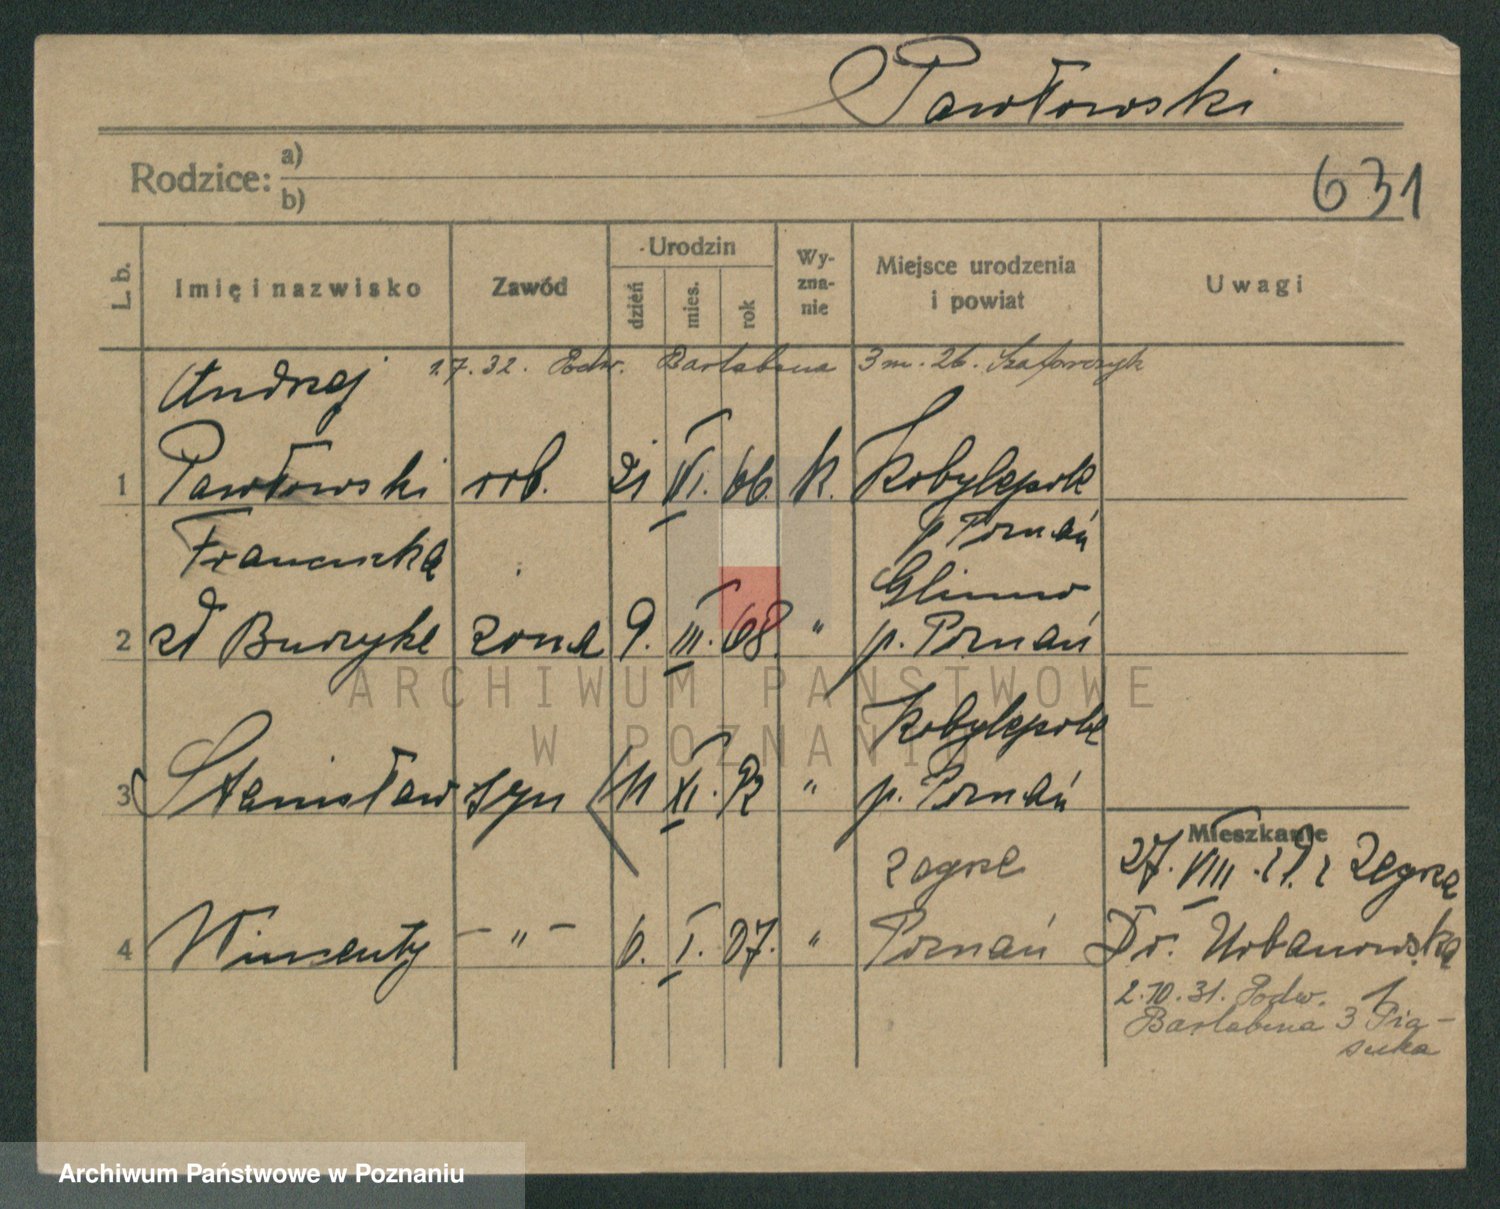 Pawłowski
Rodzice: a)
b)
631
L. b. Imię i nazwisko Zawód Urodzin dzień mies. rok Wy-zna-nie Miejsce urodzenia i powiat Uwagi
1.7.32. Podw. Bartabena 3 m. 26.
Andrzej
1 Pawłowski rob. 21 VI. 66. k. Kobylepole
p Poznań
Franciszka
Glinno
2 zd żona 9. III. 68. " p. Poznań
Kobylepole
3 Stanisław syn 11 XI. 92 " p. Poznań
Mieszkanie
Zegrze 27. VIII. Zegrze
4 Wincenty - " - 6. I. 07. " Poznań Dr. Urbanowska
2.10.31. Podw. 1
Bartabena 3
ARCHIWUM PAŃSTWOWE
W POZNANIU
Archiwum Państwowe w Poznaniu